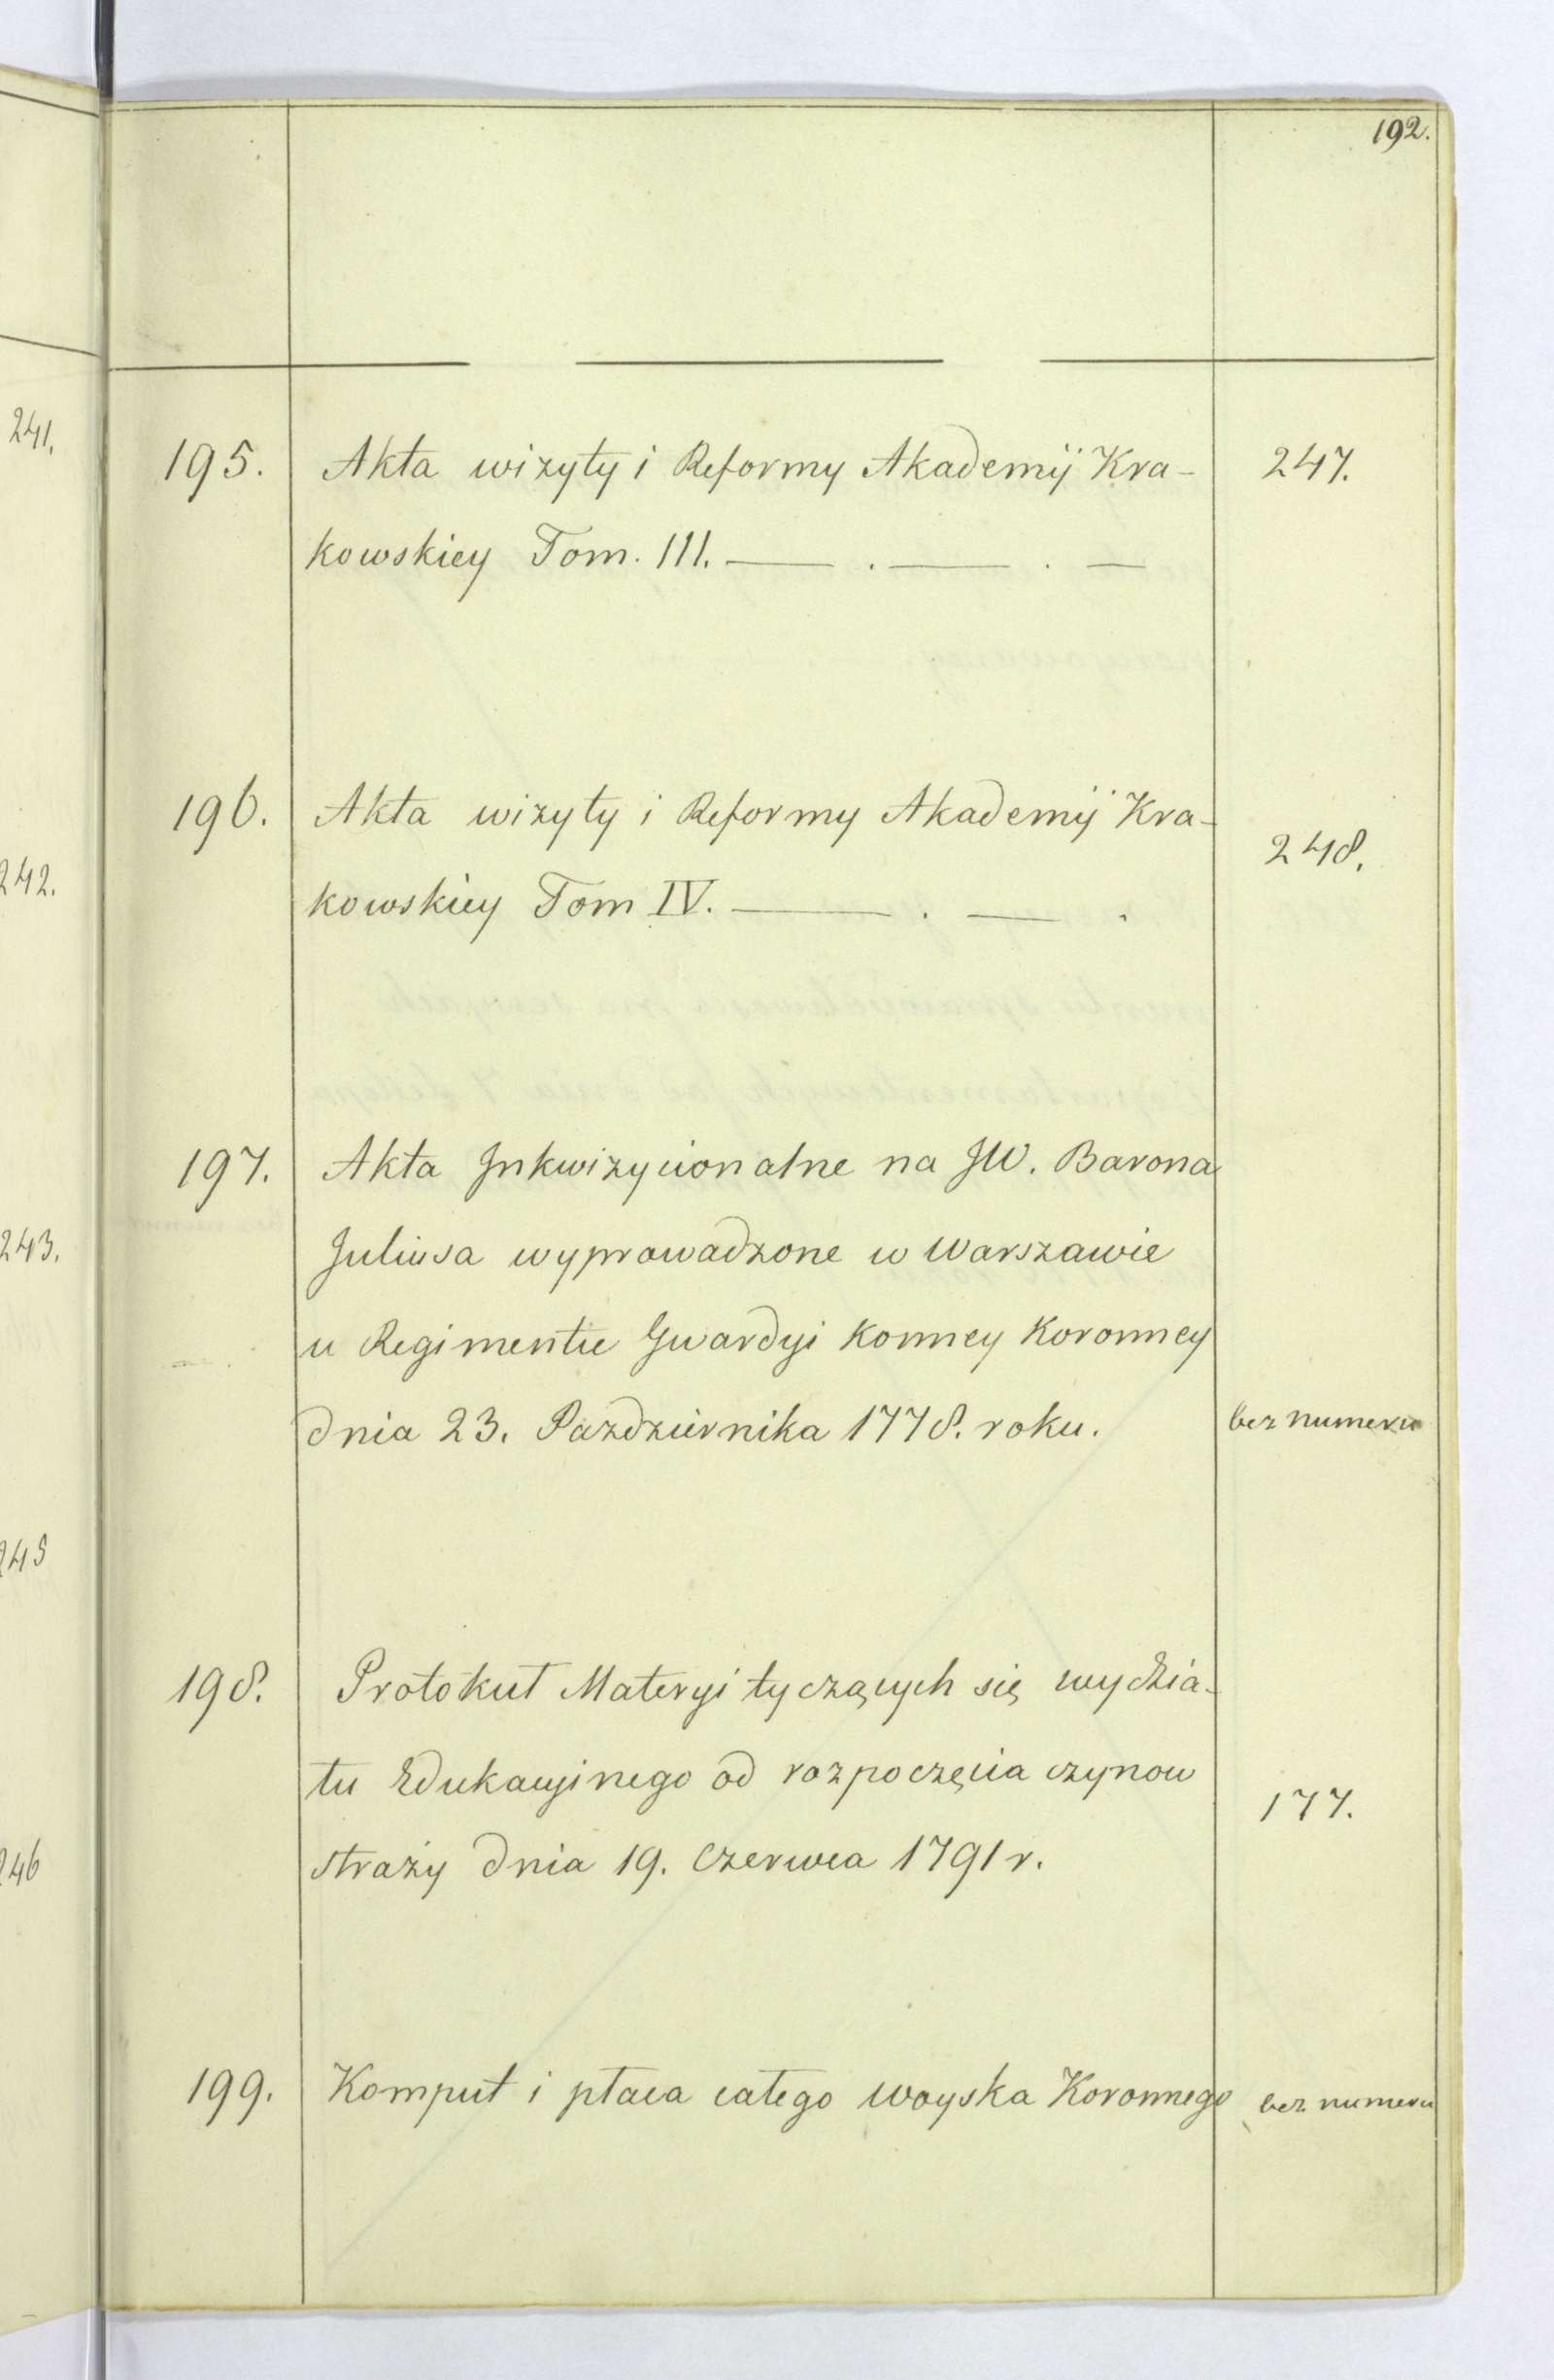 192.
241.
195. Akta wizyty i Reformy Akademij Kra- 247.
kowskiey Tom. III. — . — . —
196. Akta wizyty i Reformy Akademij Kra-
248.
242.
kowskiey Tom IV. — . — .
197. Akta Inkwizycionalne na JW. Barona
243.
Juliusa wyprowadzone w Warszawie
u Regimentie Gwardyi Konney Koronney
dnia 23. Października 1778. roku. bez numeru
245
198. Protokuł Materyi tyczących się wydzia-
łu Edukacyjnego od rozpoczęcia czynow
177.
246
straży dnia 19. Czerwca 1791 r.
199. Komput i płaca całego woyska Koronnego bez numeru